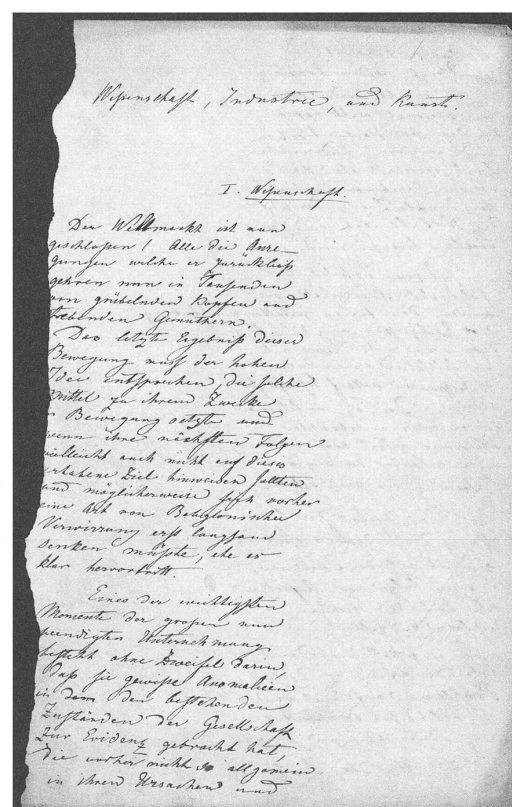 Wissenschaft, Industrie, und Kunst.
I. Wissenschaft.
Der Weltmarkt ist nun
geschlossen! Alle die Anre-
gungen welche er zurückließ
gehren nun in Tausenden
von grübelnden Köpfen und
strebenden Gemüthern.
Das letzte Ergebniß dieser
Bewegung muß der hohen
Idee entsprechen, die solche
Mittel zu ihrem Zwecke
in Bewegung setzte und
wenn ihre nächsten Folgen
vielleicht auch nicht auf dieses
erhabene Ziel hinweisen sollten
und möglicherweise sich vorher
eine Art von Babylonischer
Verwirrung erst langsam
senken müßte, ehe es
klar hervortritt.
Eines der wichtigsten
Momente der großen nun
beendigten Unternehmung
besteht ohne Zweifel darin,
daß sie gewisse Anomalieen
in dem den bestehenden
Zuständen der Gesellschaft
zur Evidenz gebracht hat,
die vorher nicht so allgemein
in ihren Ursachen und